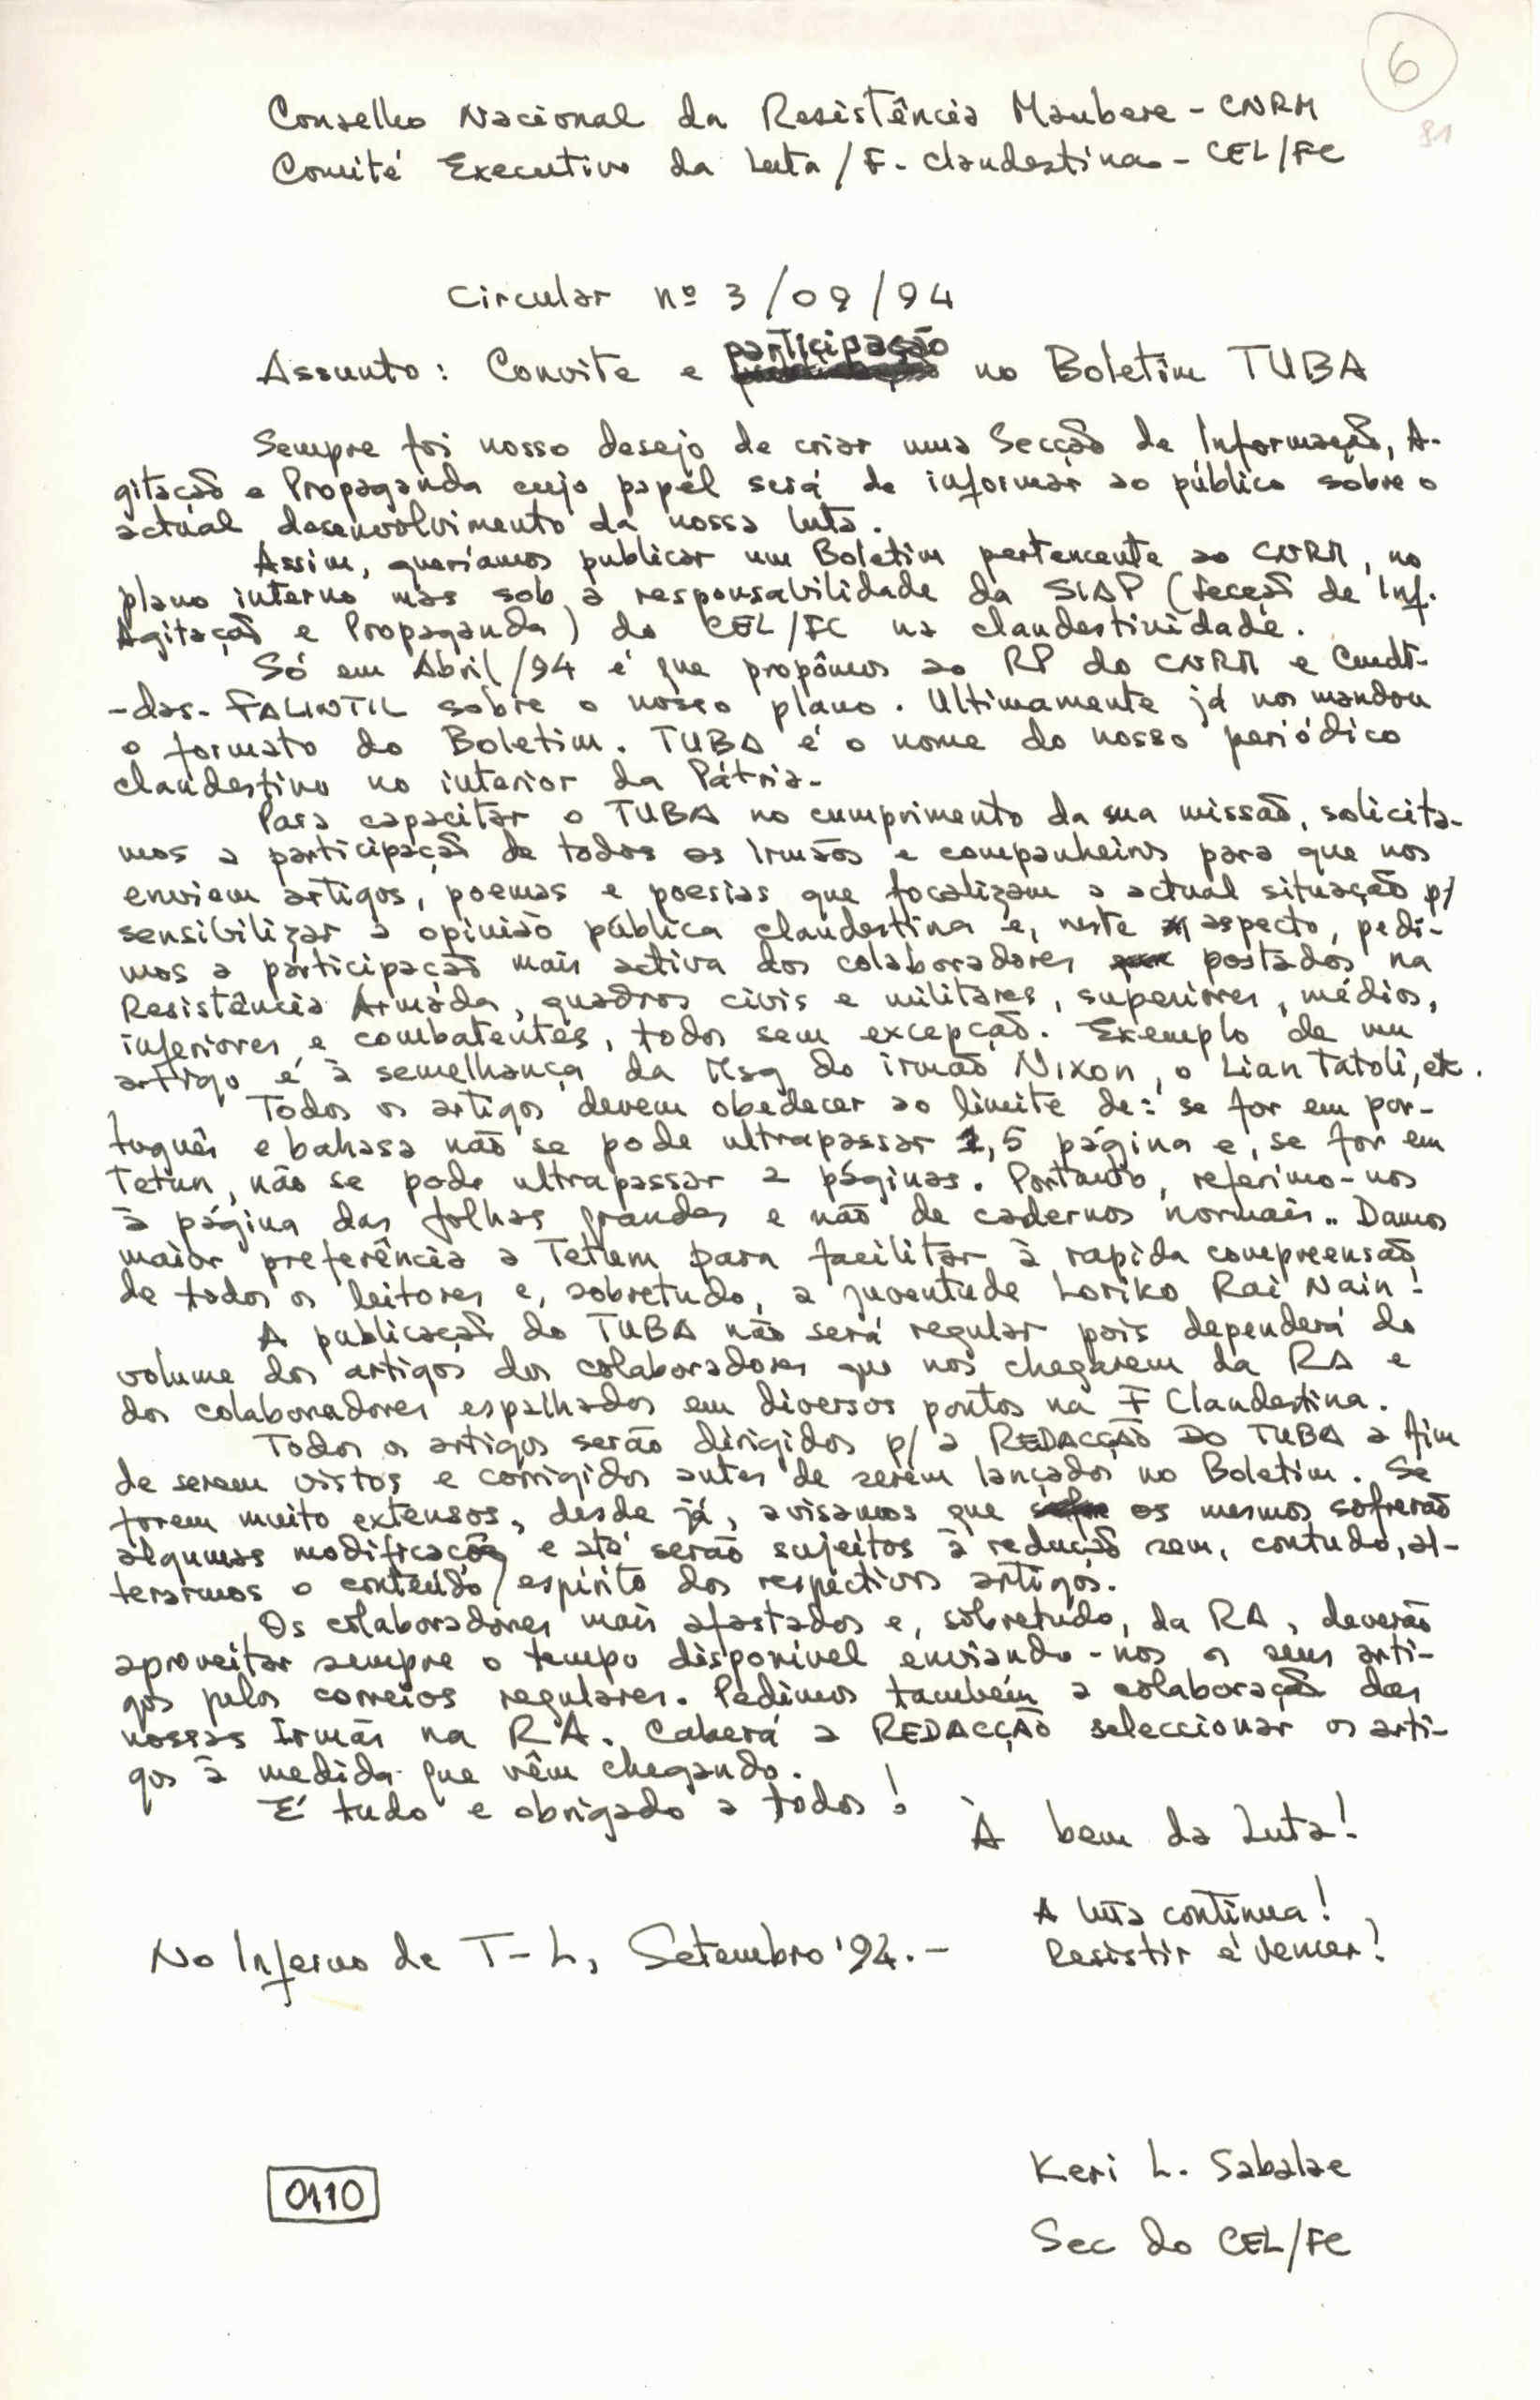 6
81
Conselho Nacional da Resistência Maubere - CNRM
Comité Executivo da Luta / F. Clandestina - CEL/FC
Circular nº 3/09/94
participação
Assunto: Convite e no Boletim TUBA
Sempre foi nosso desejo de criar uma Secção de Informação, A-
gitação e Propaganda cujo papel será de informar ao público sôbre o
actual desenvolvimento da nossa luta.
Assim, queríamos publicar um Boletim pertencente ao CNRM, no
plano interno mas sob a responsabilidade da SIAP (Secção de Inf.
Agitação e Propaganda) do CEL/FC na clandestinidade.
Só em Abril/94 é que propômos ao RP do CNRM e Cmdt-
-das- FALINTIL sobre o nosso plano. Ultimamente já nos mandou
o formato do Boletim. TUBA é o nome do nosso periódico
clandestino no interior da Pátria.
Para capacitar o TUBA no cumprimento da sua missão, solicita-
mos a participação de todos os Irmãos e companheiros para que nos
enviem artigos, poemas e poesias que focalizam a actual situação p/
sensibilizar a opinião pública clandestina e, neste aspecto, pedi-
mos a participação mais activa dos colaboradores postados na
Resistência Armada, quadros civis e militares, superiores, médios,
inferiores e combatentes, todos sem excepção. Exemplo de um
artigo é à semelhança da Msg do irmão Nixon, o Lian Tatoli, etc.
Todos os artigos devem obedecer ao limite de: se for em por-
tuguês e bahasa não se pode ultrapassar 1,5 página e, se for em
Tetun, não se pode ultrapassar 2 páginas. Portanto, referimo-nos
à página das folhas grandes e não de cadernos normais.. Damos
maior preferência a Tetum para facilitar à rapida compreensão
de todos os leitores e, sobretudo, a juventude Loriko Rai Nain!
A publicação do TUBA não será regular pois dependerá do
volume dos artigos dos colaboradores que nos chegarem da RA e
dos colaboradores espalhados em diversos pontos na F Clandestina.
Todos os artigos serão dirigidos p/ a REDACÇÃO DO TUBA a fim
de serem vistos e corrigidos antes de serem lançados no Boletim. Se
forem muito extensos, desde já, avisamos que os mesmos sofrerão
algumas modificações e até serão sujeitos à redução sem, contudo, al-
terarmos o conteúdo/espírito dos respectivos artigos.
Os colaboradores mais afastados e, sôbretudo, da RA, deverão
aproveitar sempre o tempo disponível enviando-nos os seus arti-
gos pelos correios regulares. Pedimos também a colaboração das
nossas Irmãs na RA. Caberá a REDACÇÃO seleccionar os arti-
gos à medida que vêm chegando.
É tudo e obrigado a todos!
À bem da Luta!
A luta continua!
No Inferno de T-L, Setembro '94.-
Resistir é Vencer!
Keri L. Sabalae
0110
Sec do CEL/FC